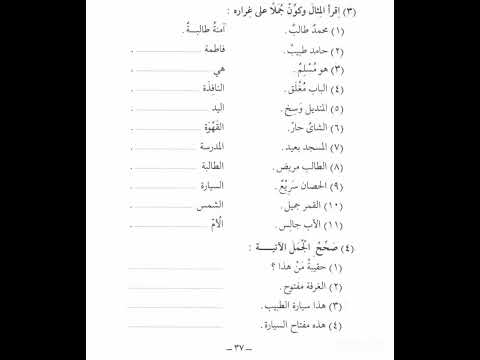 (٣) اِقرأ المِثالَ وكوِّنْ جُمَلًا على غِراره :
(١) محمدٌ طالبٌ . آمنةُ طالبـةٌ .
(٢) حامد طبيبٌ . فاطمة .................... .
(٣) هو مُسْلِمٌ . هي .................... .
(٤) الباب مُغْلَق . النافِذَة .................... .
(٥) المنديل وَسِخ . اليد .................... .
(٦) الشائ حارّ . القَهْوَة .................... .
(٧) المسجد بعيد . المدرسة .................... .
(٨) الطالب مريض . الطالبة .................... .
(٩) الحصان سَرِيْعٌ . السيارة .................... .
(١٠) القمر جميل . الشمس .................... .
(١١) الأب جالِس . الْأُمّ .................... .
(٤) صَحِّحْ الْجُمَلَ الآتيـــة :
(١) حقيبةُ مَنْ هذا ؟ ....................
(٢) الغرفة مفتوح . ....................
(٣) هذا سيارة الطبيب . ....................
(٤) هذه مفتاح السيارة . ....................
– ٣٧ –